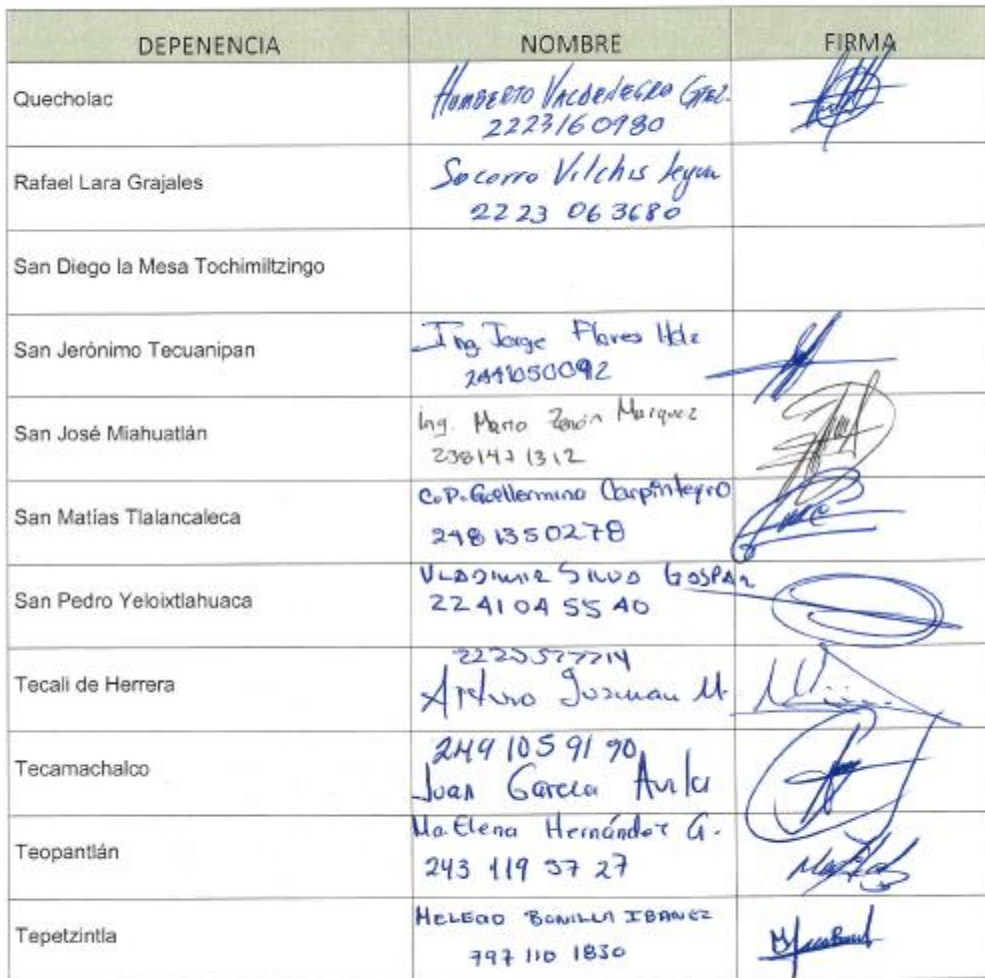 DEPENENCIA NOMBRE FIRMA
Quecholac
HUMBERTO VALDENEGRO
2223160980
Rafael Lara Grajales
Socorro Vilchis
2223 063680
San Diego la Mesa Tochimiltzingo
San Jerónimo Tecuanipan
Ing Jorge Flores Hdz
San José Miahuatlán
Ing. Mario Zenón Marquez
San Matías Tlalancaleca
C.P. Guillermina Carpinteyro
248 1350278
San Pedro Yeloixtlahuaca
VLADIMIR SILVA GASPAR
224104 55 40
Tecali de Herrera
Arturo Guzman M.
Tecamachalco
249 105 91 90
Juan Garcia Avila
Teopantlán
Ma. Elena Hernández G.
243 119 57 27
Tepetzintla
MELECIO BONILLA IBANEZ
797 110 1830